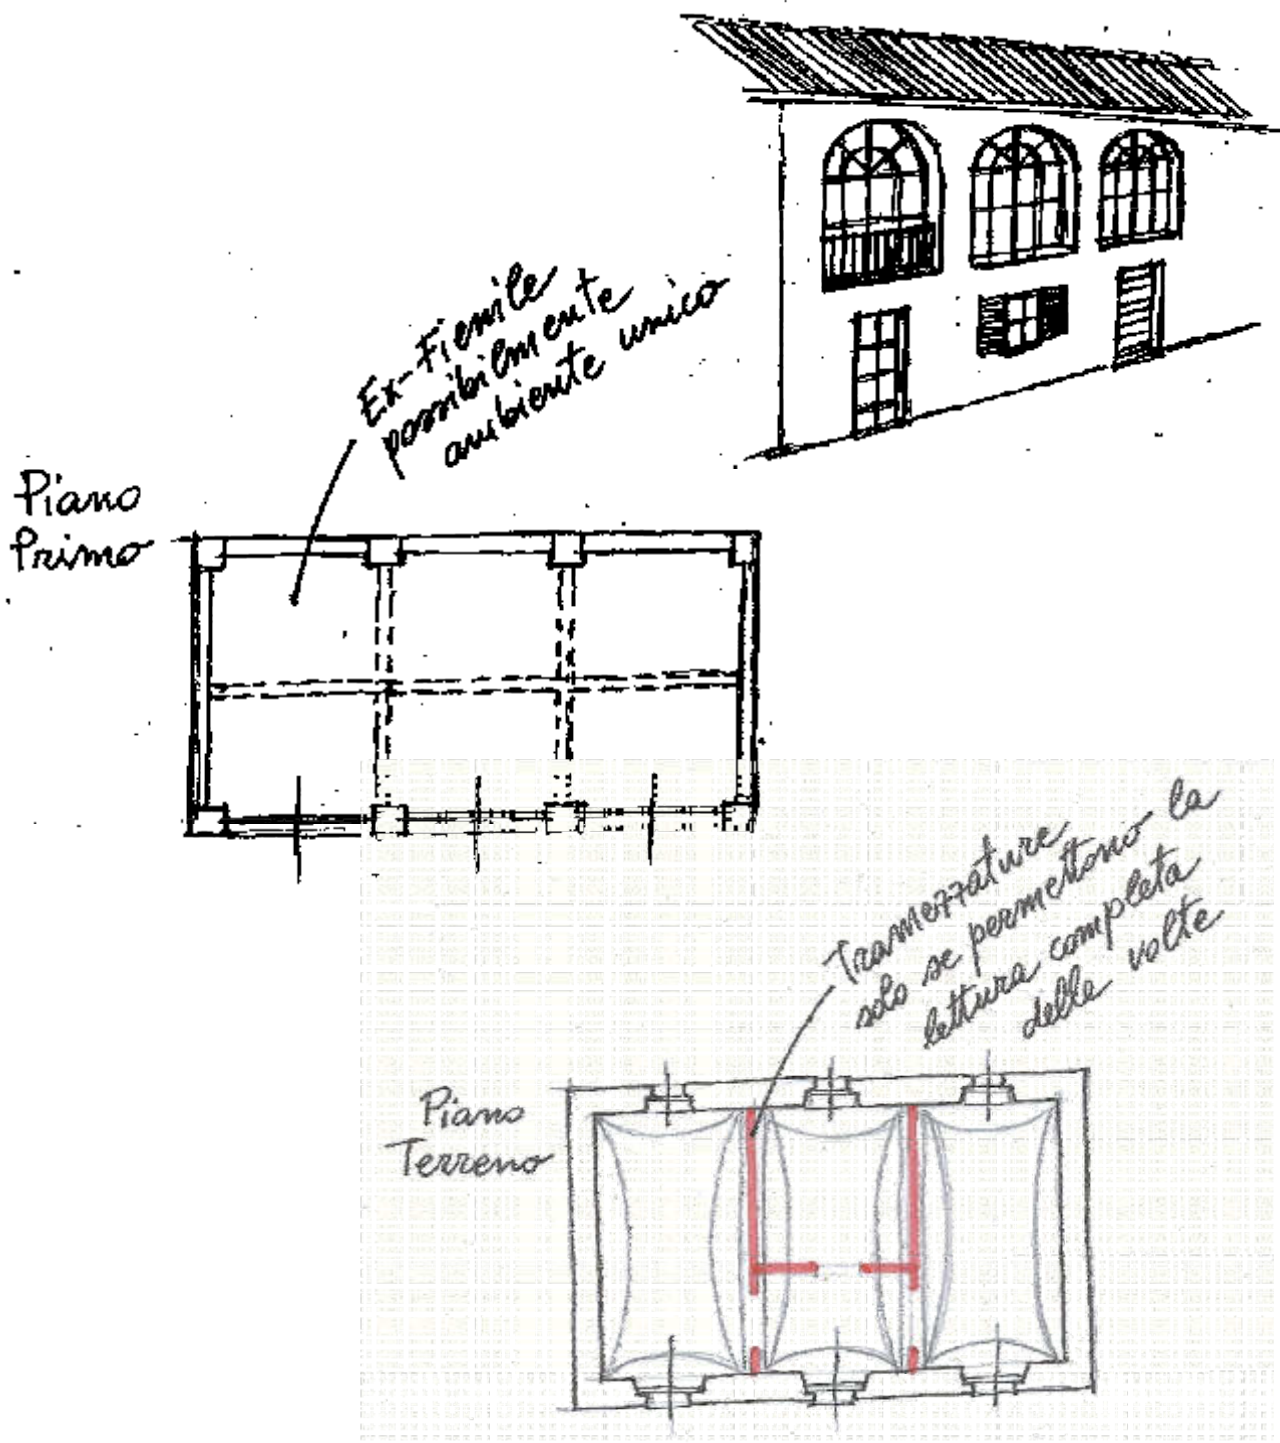 Ex-Fienile
possibilmente
ambiente unico
Piano
Primo
Tramezzature
solo se permettono la
lettura completa
delle volte
Piano
Terreno